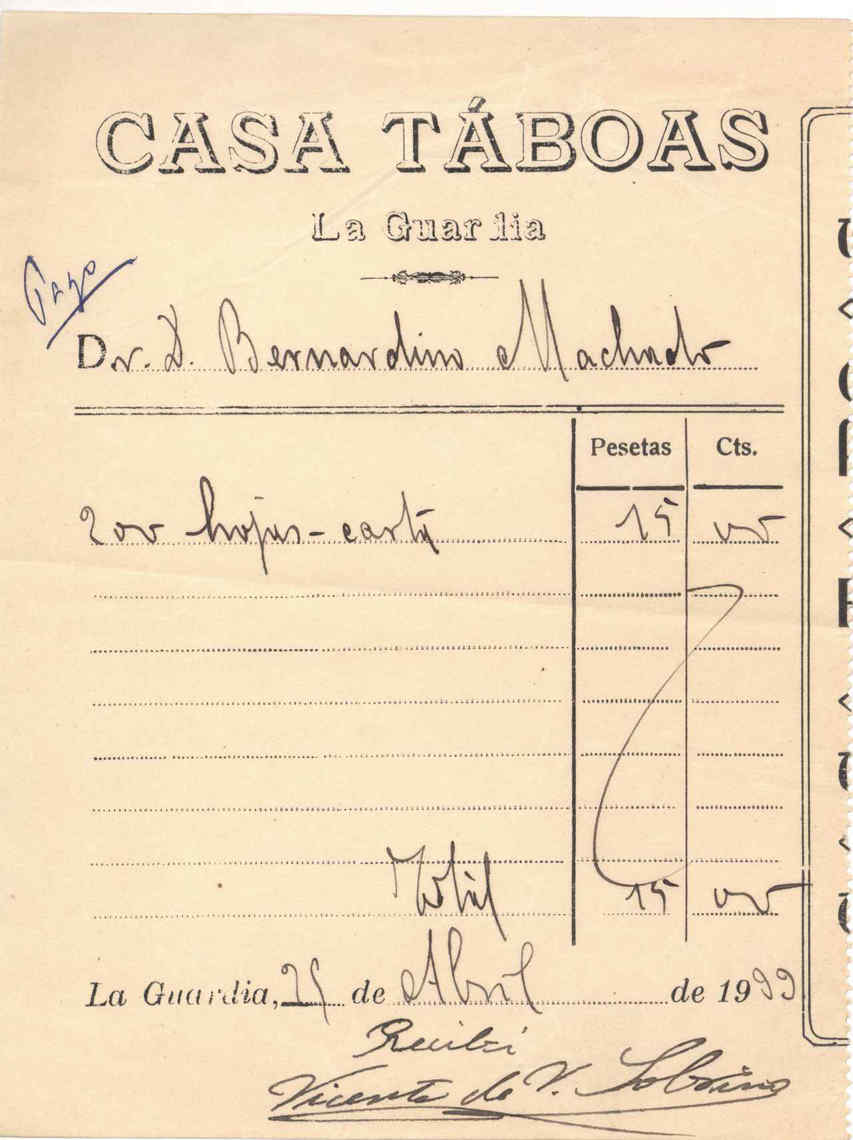 CASA TÁBOAS
La Guardia
Pago
Dr. D. Bernardino Machado
Pesetas Cts.
200 hojas-carta 15 00
Total 15 00
La Guardia, de Abril de 19
Recibí
Vicente de V. Sobrino